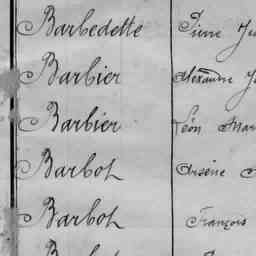 Barbedette Pierre
Barbier Alexandre
Barbier Léon
Barbot Arsène
Barbot François